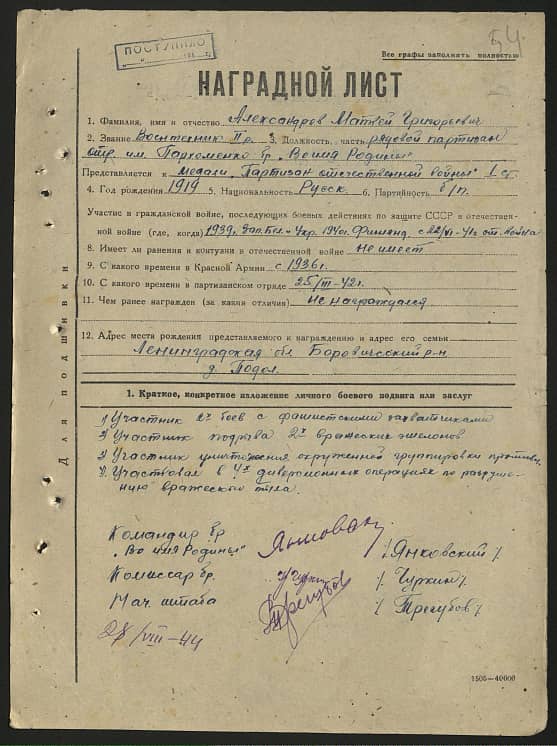 54
ПОСТУПИЛО
Все графы заполнять полностью
НАГРАДНОЙ ЛИСТ
1. Фамилия, имя и отчество Александров Матвей Григорьевич
2. Звание Воентехник II р. 3. Должность, часть рядовой партизан
отр. им. Пархоменко бр. "Во имя Родины"
Представляется к медали "Партизан отечественной войны" I ст.
4. Год рождения 1919 5. Национальность Русск. 6. Партийность б/п.
Участие в гражданской войне, последующих боевых действиях по защите СССР и отечествен-
ной войне (где, когда) 1939, Зап. Бел. и Укр. 1940г. Финлянд. с 22/VI-41г. от. война
8. Имеет ли ранения и контузии в отечественной войне Не имеет
9. С какого времени в Красной Армии с 1936г.
10. С какого времени в партизанском отряде 25/III-42г.
11. Чем ранее награжден (за какия отличия) Не награждался
12. Адрес места рождения представляемого к награждению и адрес его семьи
Ленинградская обл. Боровичский р-н
д. Подол.
Для подшивки
1. Краткое, конкретное изложение личного боевого подвига или заслуг
1) Участник боев с фашистскими захватчиками
2) Участник подрыва 2х вражеских эшелонов
3) Участник уничтожения окруженной группировки противн.
4) Участвовал в 4х диверсионных операциях по разруше-
нию вражеского тыла.
Командир бр.
"Во имя Родины" /Янковский/
Комиссар бр. /Чуркин/
Нач. штаба /Трегубов/
28/VIII-44
1505—40000